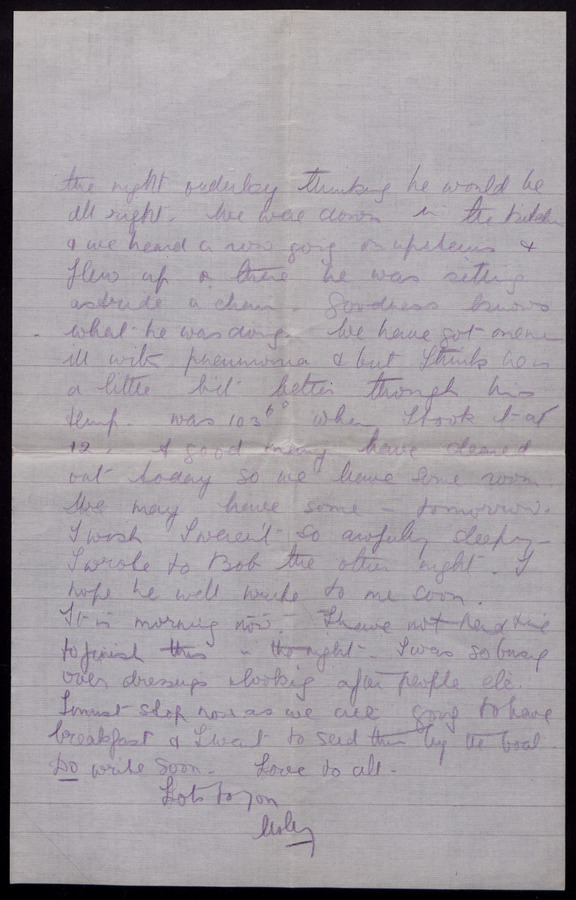 the night orderley thinking he would be
all right. We were down in the kitchen
& we heard a row going on upstairs &
flew up & there he was sitting
astride a chair. Goodness knows
what he was doing. We have got one
ill with pneumonia & but I think he is
a little bit better though his
temp. was 103 6° when I took it at
12. A good many have cleared
out today so we have some room.
We may have some – tomorrow.
I wish I weren't so awfully sleepy –
I wrote to Bob the other night. I
hope he will write to me soon.
It is morning now. I have not had time
to finish this in the night. I was so busy
over dressings & looking after people etc.
I must stop now as we are going to have
breakfast & I want to send this by the boat.
Do write soon. Love to all –
Lots to you